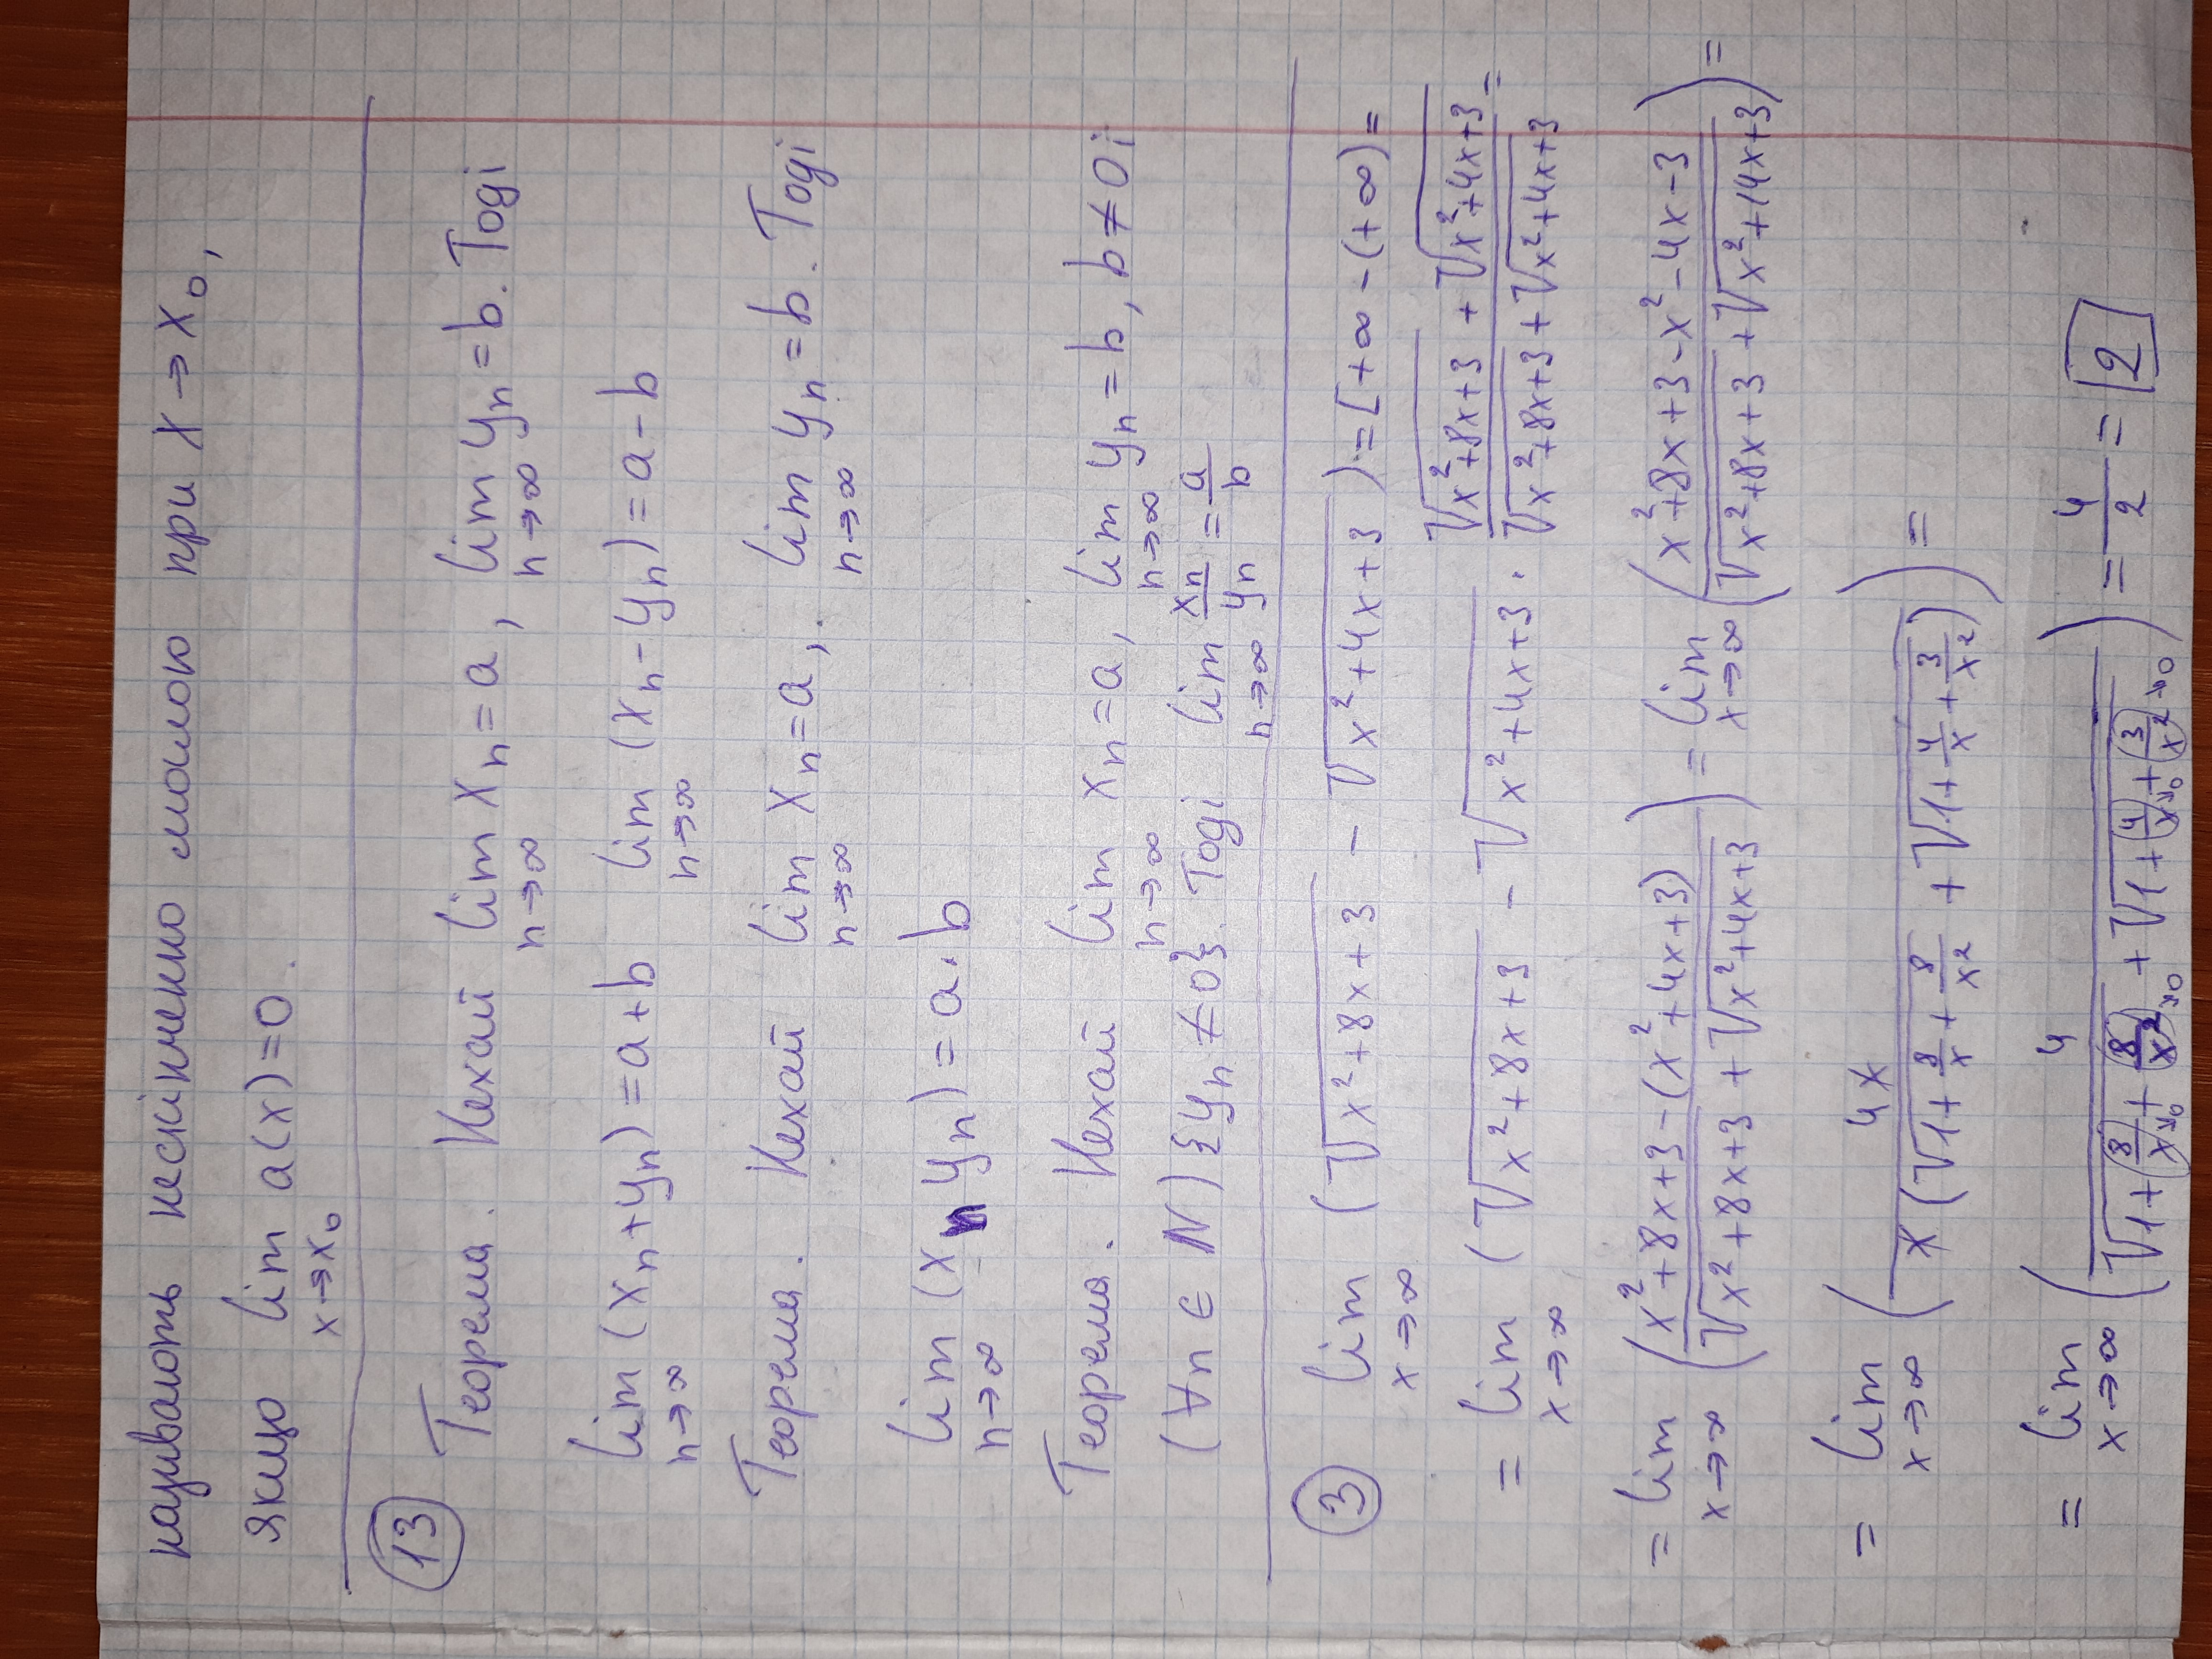 називають нескінченно малою при x → x₀,
якщо lim a(x)=0.
x→x₀
13
Теорема. Нехай lim xₙ = a, lim yₙ = b. Тоді
n→∞ n→∞
lim (xₙ+yₙ) = a+b lim (xₙ-yₙ) = a-b
n→∞ n→∞
Теорема. Нехай lim xₙ = a, lim yₙ = b. Тоді
n→∞ n→∞
lim (xₙ yₙ) = a·b
n→∞
Теорема. Нехай lim xₙ = a, lim yₙ = b, b≠0 і
n→∞ n→∞
(∀n ∈ N) {yₙ ≠ 0}. Тоді lim xₙ/yₙ = a/b
n→∞
3 lim (√(x²+8x+3) - √(x²+4x+3)) = [+∞ -(+∞) =
x→∞
= lim (√(x²+8x+3) - √(x²+4x+3) · (√(x²+8x+3) + √(x²+4x+3))/(√(x²+8x+3) + √(x²+4x+3)) =
x→∞
= lim ((x²+8x+3-(x²+4x+3))/(√(x²+8x+3) + √(x²+4x+3))) = lim ((x²+8x+3-x²-4x-3)/(√(x²+8x+3) + √(x²+14x+3))) =
x→∞ x→∞
= lim (4x/(x(√(1+8/x+8/x²) + √(1+4/x+3/x²)))) =
x→∞
= lim (4/(√(1+8/x→0+8/x²→0) + √(1+4/x→0+3/x²→0))) = 4/2 = 2
x→∞